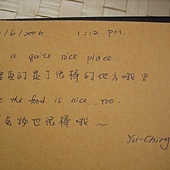 /6/2006 1:12 P.M.
a quite nice place.
真的是了不得的地方哦!
the food is nice, too.
食物也不得哦~
Yu-Ching